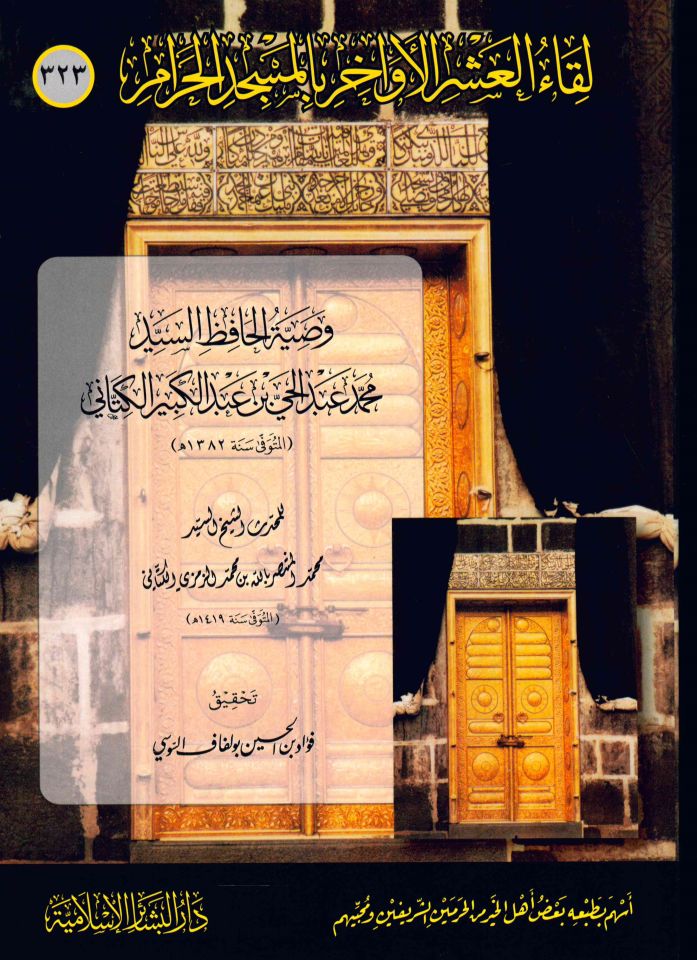 لِقَاءُ العَشْرِ الأَوَاخِرِ بِالمَسْجِدِ الحَرَامِ
٣٢٣
وَصِيَّةُ الحَافِظِ السَيِّدِ
مُحَمَّد عَبْد الحَيّ بْن عَبْد الكَبِير الكِتَّانِي
(المُتَوَفَّى سَنَة ١٣٨٢ه)
للمحدث الشيخ السيد
محمد المنتصر بالله بن محمد الزمزمي الكتاني
(المُتَوَفَّى سَنَة ١٤١٩ه)
تَحْقِيْق
فؤاد بن الحسين بولفاف السوسي
أَسْهَمَ بِطَبْعِهِ بَعْضُ أَهْلِ الخَيْرِ مِن الحَرَمَيْنِ الشَّرِيفَيْنِ وَمُحِبِّيهِم
دَارُ البَشَائِرِ الإِسْلَامِيَّة